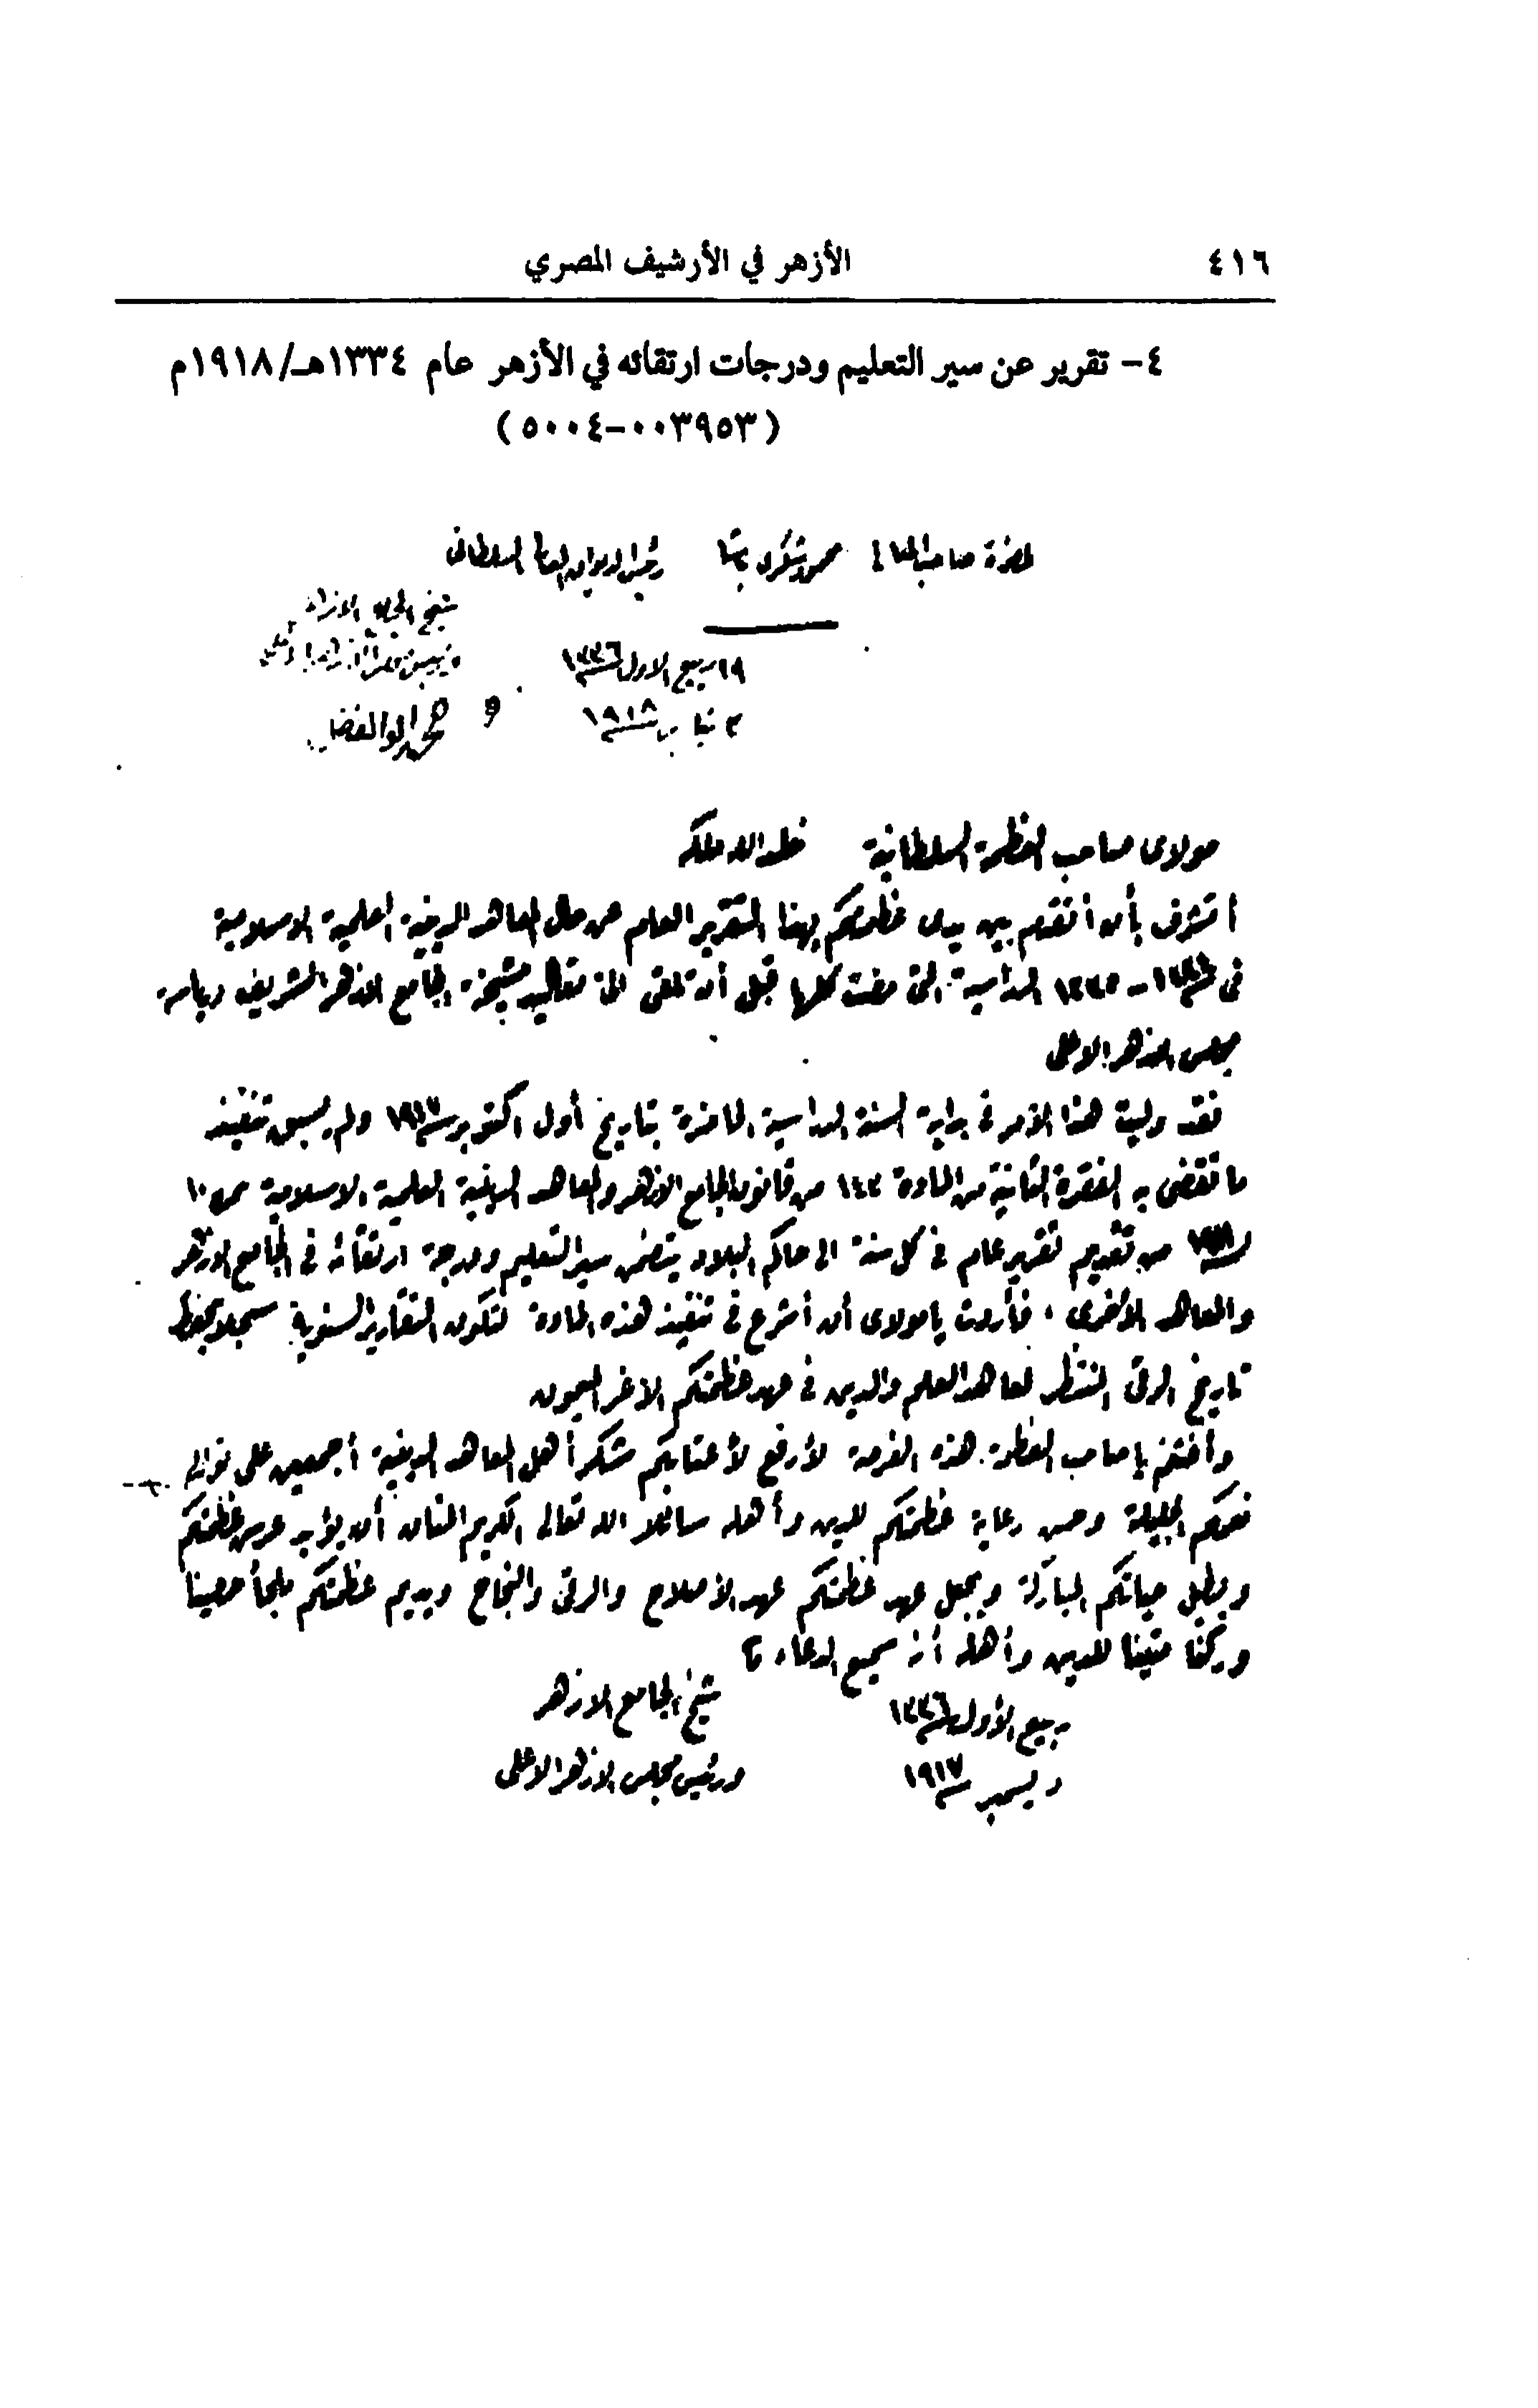 ٤١٦
الأزهر في الأرشيف المصري
٤- تقرير عن سير التعليم ودرجات ارتقائه في الأزهر عام ١٣٣٤هـ/١٩١٨م
(٥٠٠٤-٠٠٣٩٥٣)
لحضرة صاحب المعالى محمود شكرى باشا رئيس الديوان العالى السلطانى
شيخ الجامع الازهر
١٩ ربيع الاول سنة ١٣٣٦
ورئيس مجلس الازهر الاعلى
٢ يناير سنة ١٩١٨
محمد ابو الفضل
مولاى صاحب العظمة السلطانية خلد الله ملكه
أتشرف بأن أتقدم بين يدى عظمتكم بهذا التقرير العام عن حال المعاهد الدينية العلمية الاسلامية
فى سنة ١٣٣٥ الدراسية التى مضت كلها قبل أن تلقى الى مقاليد مشيخة الجامع الازهر الشريف ورياسة
مجلس الازهر الاعلى
فقد وليت هذا الامر فى بداية السنة الدراسية الحاضرة بتاريخ أول اكتوبر سنة ١٩١٧ ولم يسبق تنفيذ
ما تقضى به الفقرة الثانية من المادة ١٤٢ من قانون الجامع الازهر والمعاهد الدينية العلمية الاسلامية نمرة ١٠
لسنة ١٩١١ من تقديم تقرير عام فى كل سنة الى حاكم البلاد يتضمن سير التعليم ودرجة ارتقائه فى الجامع الازهر
والمعاهد الأخرى، فأردت يا مولاى أن أشرع فى تنفيذ هذه المادة لتكون التقارير السنوية سجلا يحفظ
تاريخ الرقى المنتظر لمعاهد العلم والدين فى عهد عظمتكم الاغر الميمون
وأغتنم يا صاحب العظمة هذه الفرصة لأرفع لأعتابكم شكر أهل المعاهد الدينية أجمعين على توالى
نعمكم الجليلة وحسن رعاية عظمتكم للدين وأهله سائلا الله تعالى الكريم المنان أن يؤيد عرش عظمتكم
ويطيل حياتكم المباركة ويجعل عهد عظمتكم عهد الاصلاح والرقى والنجاح ويديم عظمتكم ملجأ حصينا
وركنا متينا للدين وأهله أنه سميع الدعاء
ربيع الأول سنة ١٣٣٦
شيخ الجامع الازهر
ديسمبر سنة ١٩١٧
ورئيس مجلس الازهر الاعلى